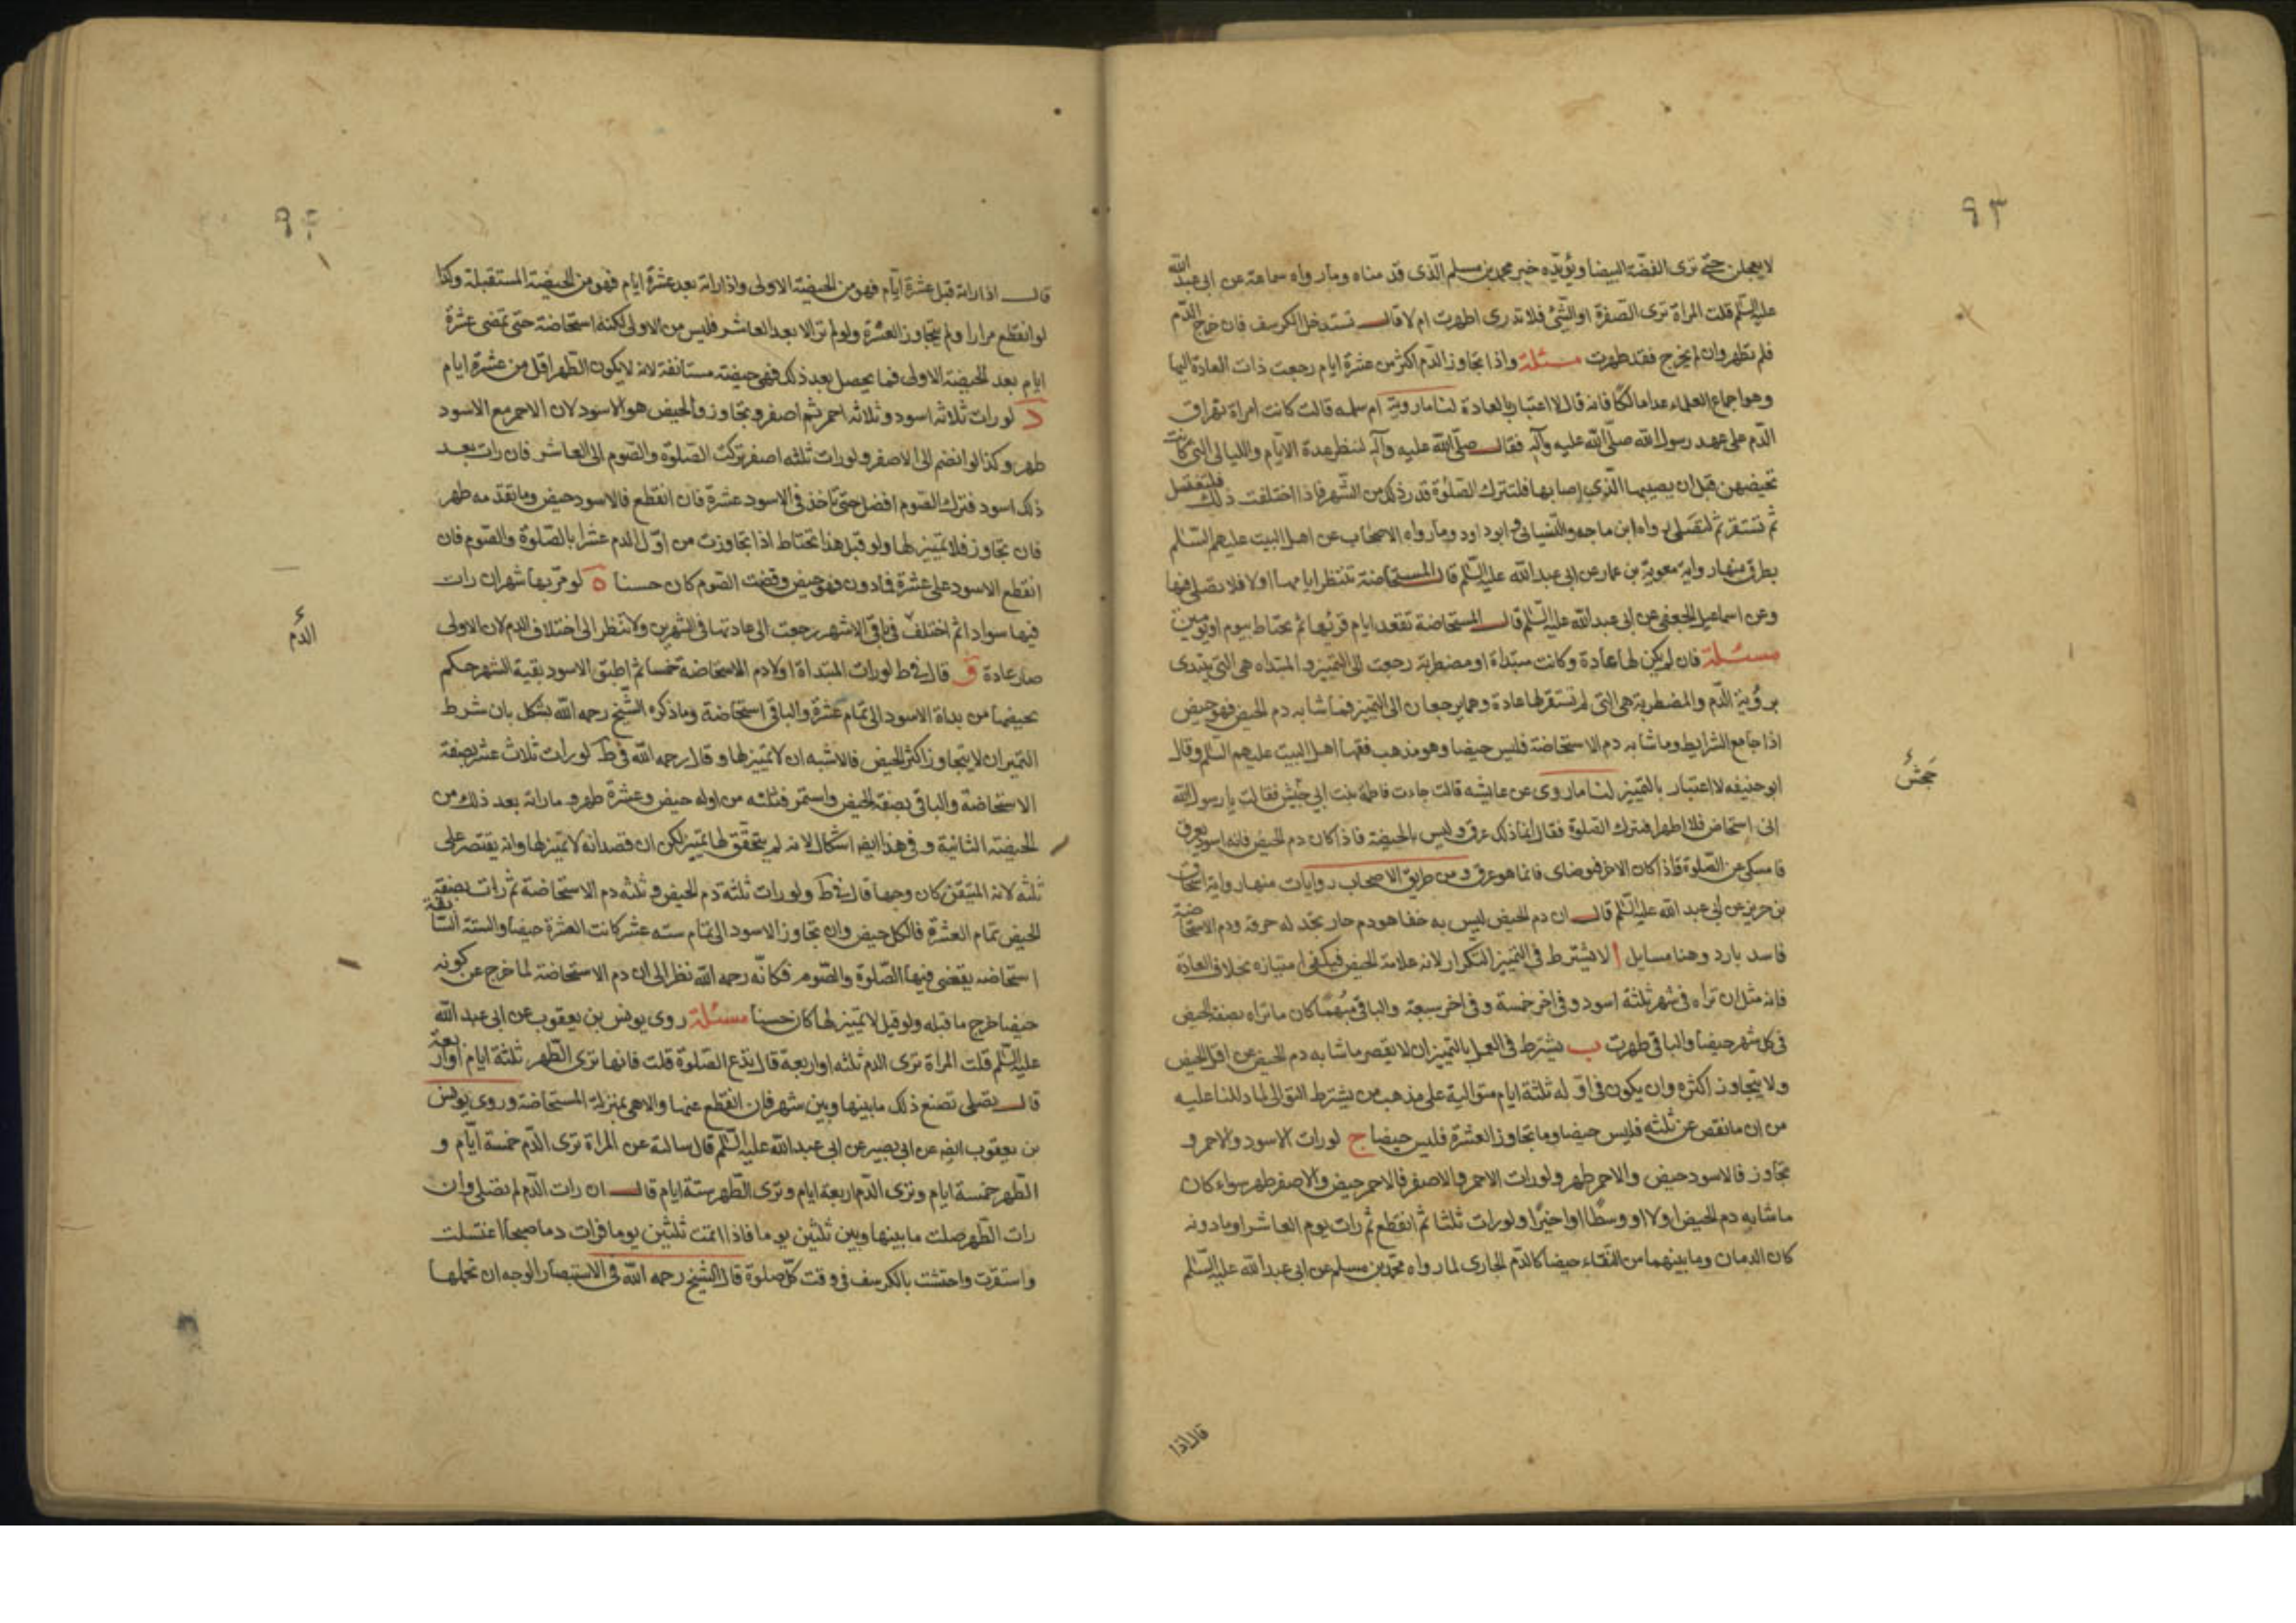 ٩٣
لا يعجلن حتى ترى القصة البيضا ويؤيده خبر محمد بن مسلم الذى قدمناه وما رواه سماعة عن ابى عبد الله
عليه السلم قلت المراة ترى الصفرة او الشئ فلا تدرى اطهرت ام لا قال تستدخل الكرسف فان خرج الدم
فلم تطهر وان لم يخرج فقد طهرت مسئلة واذا تجاوز الدم اكثر من عشرة ايام رجعت ذات العادة اليها
وهو اجماع العلماء عدا مالكا فانه قال لا اعتبار بالعادة لنا ما روية ام سلمه قالت كانت امراة تهراق
الدم على عهد رسول الله صلى الله عليه وآله فقال صلى الله عليه وآله لتنظر عدة الايام والليالى التى كانت
تحيضهن قبل ان يصيبها الذى اصابها فلتترك الصلوة قدر ذلك من الشهر فاذا اختلفت ذلك فلتغتسل
ثم تستثفر ثم لتصلى رواه ابن ماجه والنسيائى وابو داود وما رواه الاصحاب عن اهل البيت عليهم السلم
بطرق منها رواية معوية بن عمار عن ابى عبد الله عليه السلم قال المستحاضة تنتظر ايامها اولا فلا تصلى فيها
وعن اسماعيل الجعفى عن ابى عبد الله عليه السلم قال المستحاضة تقعد ايام قرئها ثم تحتاط بيوم او يومين
مسئلة فان لم يكن لها عادة وكانت مبتداة او مضطربة رجعت الى التميز والمبتداه هى التى يبتدى
برؤية الدم والمضطربة هى التى لم تستقر لها عادة وهما يرجعان الى التميز فما شابه دم الحيض فهو حيض
اذا جامع الشرايط وما شابه دم الاستحاضة فليس حيضا وهو مذهب فقها اهل البيت عليهم السلم وقال
ابو حنيفه لا اعتبار بالتمييز لنا ما روى عن عايشه قالت جاءت فاطمة بنت ابى حبيش فقالت يا رسول الله
انى استحاض فلا اطهر افترك الصلوة فقال انما ذلك عرق وليس بالحيضة فاذا كان دم الحيض فانه اسود يعرف
فامسكى عن الصلوة فاذا كان الاخر فتوضاى فانما هو عرق ومن طريق الاصحاب روايات منها رواية اسحاق
بن جرير عن ابى عبد الله عليه السلم قال ان دم الحيض ليس به خفا هو دم حار تجد له حرقة ودم الاستحاضة
فاسد بارد وهنا مسايل ا لا يشترط فى التميز التكرار لانه علامة الحيض فيكفى امتيازه بخلاف العادة
فانه مثل ان تراه فى شهر ثلثة اسود وفى اخر خمسة وفى اخر سبعة والباقى مبهما كان ما تراه بصفة الحيض
فى كل شهر حيضا والباقى طهرت ب يشترط فى العمل بالتمييز ان لا يقصر ما شابه دم الحيض عن اقل الحيض
ولا يتجاوز اكثره وان يكون فى اوله ثلثة ايام متوالية على مذهب من يشترط التوالى لما دللنا عليه
من ان ما نقص عن ثلثه فليس حيضا وما تجاوز العشرة فليس حيضا ج لو رات الاسود والاحمر و
تجاوز فالاسود حيض والاحمر طهر ولو رات الاحمر والاصفر فالاحمر حيض والاصفر طهر سواء كان
ما شابه دم الحيض اولا او وسطا او اخيرا ولو رات ثلثا ثم انقطع ثم رات يوم العاشر او ما دونه
كان الدمان وما بينهما من النقاء حيضا كالدم الجارى لما رواه محمد بن مسلم عن ابى عبد الله عليه السلم
قال اذا
قال اذا راته قبل عشرة ايام فهو من الحيضة الاولى واذا راته بعد عشرة ايام فهو من الحيضة المستقبلة وكذا
لو انقطع مرارا ولم يتجاوز العشرة ولو لم تر الا بعد العاشر فليس من الاولى لكنه استحاضة حتى تمضى عشرة
ايام بعد الحيضة الاولى فما يحصل بعد ذلك فهى حيضة مستانفة لانه لا يكون الطهر اقل من عشرة ايام
د لو رات ثلاثه اسود وثلاثه احمر ثم اصفر وتجاوز فالحيض هو الاسود لان الاحمر مع الاسود
طهر وكذا لو انضم الى الاصفر ولو رات ثلثه اصفر تركت الصلوة والصوم الى العاشر فان رات بعد
ذلك اسود فترك الصوم افضل حتى تاخذ فى الاسود عشرة فان انقطع فالاسود حيض وما تقدمه طهر
فان تجاوز فلا تمييز لها ولو قيل هذا تحتاط اذا تجاوزت من اول الدم عشرا بالصلوة والصوم فان
انقطع الاسود على عشرة فما دون فهو حيض وقضت الصوم كان حسنا ه لو مر بها شهران رات
فيها سوادا ثم اختلف فى باقى الاشهر رجعت الى عادتها فى الشهرين ولا تنظر الى اختلاف الدم لان الاولى
صار عادة و قال فى ط لو رات المبتداة اولا دم الاستحاضة خمسا ثم اطبق الاسود بقية الشهر حكم
بحيضها من بداة الاسود الى تمام عشرة والباقى استحاضة وما ذكره الشيخ رحمه الله يشكل بان شرط
التميز ان لا يتجاوز اكثر الحيض فالاشبه ان لا تميز لها وقال رحمه الله فى ط لو رات ثلاث عشر بصفة
الاستحاضة والباقى بصفة الحيض واستمر فثلثه من اوله حيض وعشرة طهر وما راته بعد ذلك من
الحيضة الثانية وفى هذا ايضا اشكال لانه لم يتحقق لها تميز لكن ان قصد انه لا تميز لها وانه يقتصر على
ثلثه لانه المتيقن كان وجها قال فى ط ولو رات ثلثة دم الحيض وثلثه دم الاستحاضة ثم رات بصفة
الحيض تمام العشرة فالكل حيض وان تجاوز الاسود الى تمام سته عشر كانت العشرة حيضا والستة السابقة
استحاضه يقضى فيها الصلوة والصوم فكانه رحمه الله نظر الى ان دم الاستحاضة لما خرج عن كونه
حيضا خرج ما قبله ولو قيل لا تميز لها كان حسنا مسئلة روى يونس بن يعقوب عن ابى عبد الله
عليه السلم قلت المراة ترى الدم ثلثه او اربعة قال تدع الصلوة قلت فانها ترى الطهر ثلثة ايام او اربعة
قال تصلى تصنع ذلك ما بينها وبين شهر فان انقطع عنها والا هى بمنزلة المستحاضة وروى يونس
بن يعقوب ايضا عن ابى بصير عن ابى عبد الله عليه السلم قال سالته عن المراة ترى الدم خمسة ايام و
الطهر خمسة ايام وترى الدم اربعة ايام وترى الطهر ستة ايام قال ان رات الدم لم تصلى وان
رات الطهر صلت ما بينها وبين ثلثين يوما فاذا اتمت ثلثين يوما فرات دما صبيحا اغتسلت
واستثفرت واحتشت بالكرسف فى وقت كل صلوة قال الشيخ رحمه الله فى الاستبصار الوجه ان نحملها
الدم